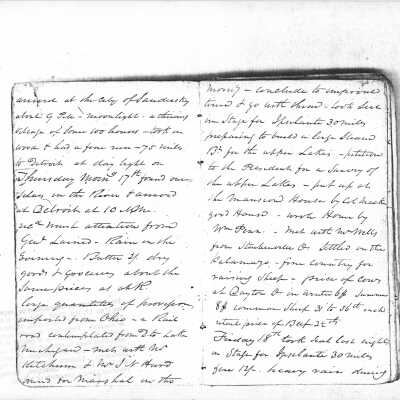 arrived at the City of Sandusky
about 9 P.M. - moonlight - a thriving
village of some 100 houses - took on
wood & had a fine run - 75 miles
to Detroit at day light on
Thursday Morng 17th found our
selves in the River & arrived
at Detroit at 10 AM.
recd much attention from
Genl Larned. Rain in the
Evening. - Butter dry
goods & Groceries about the
same prices as at R.
large quantities of
imported from Ohio - a Rail
road contemplated from D to Lake
Michigan - met with Mr
Ketchum & Mr J N Hurd
and for Marshal in the
morng - conclude to
& go with them - took seat
in Stage for Ipsilante 30 miles
preparing to build a large Steam
Bt for the upper Lakes - petition
to the President for a Survey of
the upper Lakes - put up at
the Mansion House by
good House - wrote Home by
Wm - Met with Mr Wells
from Steubenville O Settled on the
Kalamazo - fine country for
raising Sheep - price of cows
at Dayton O in winter 6$ Summer
8$ common Sheep 31 to 36 cts each
price of Beef 2½ cts
Friday 18th took Seat last night
in Stage for Ipsilante 30 miles
fare 12/. heavy rain during